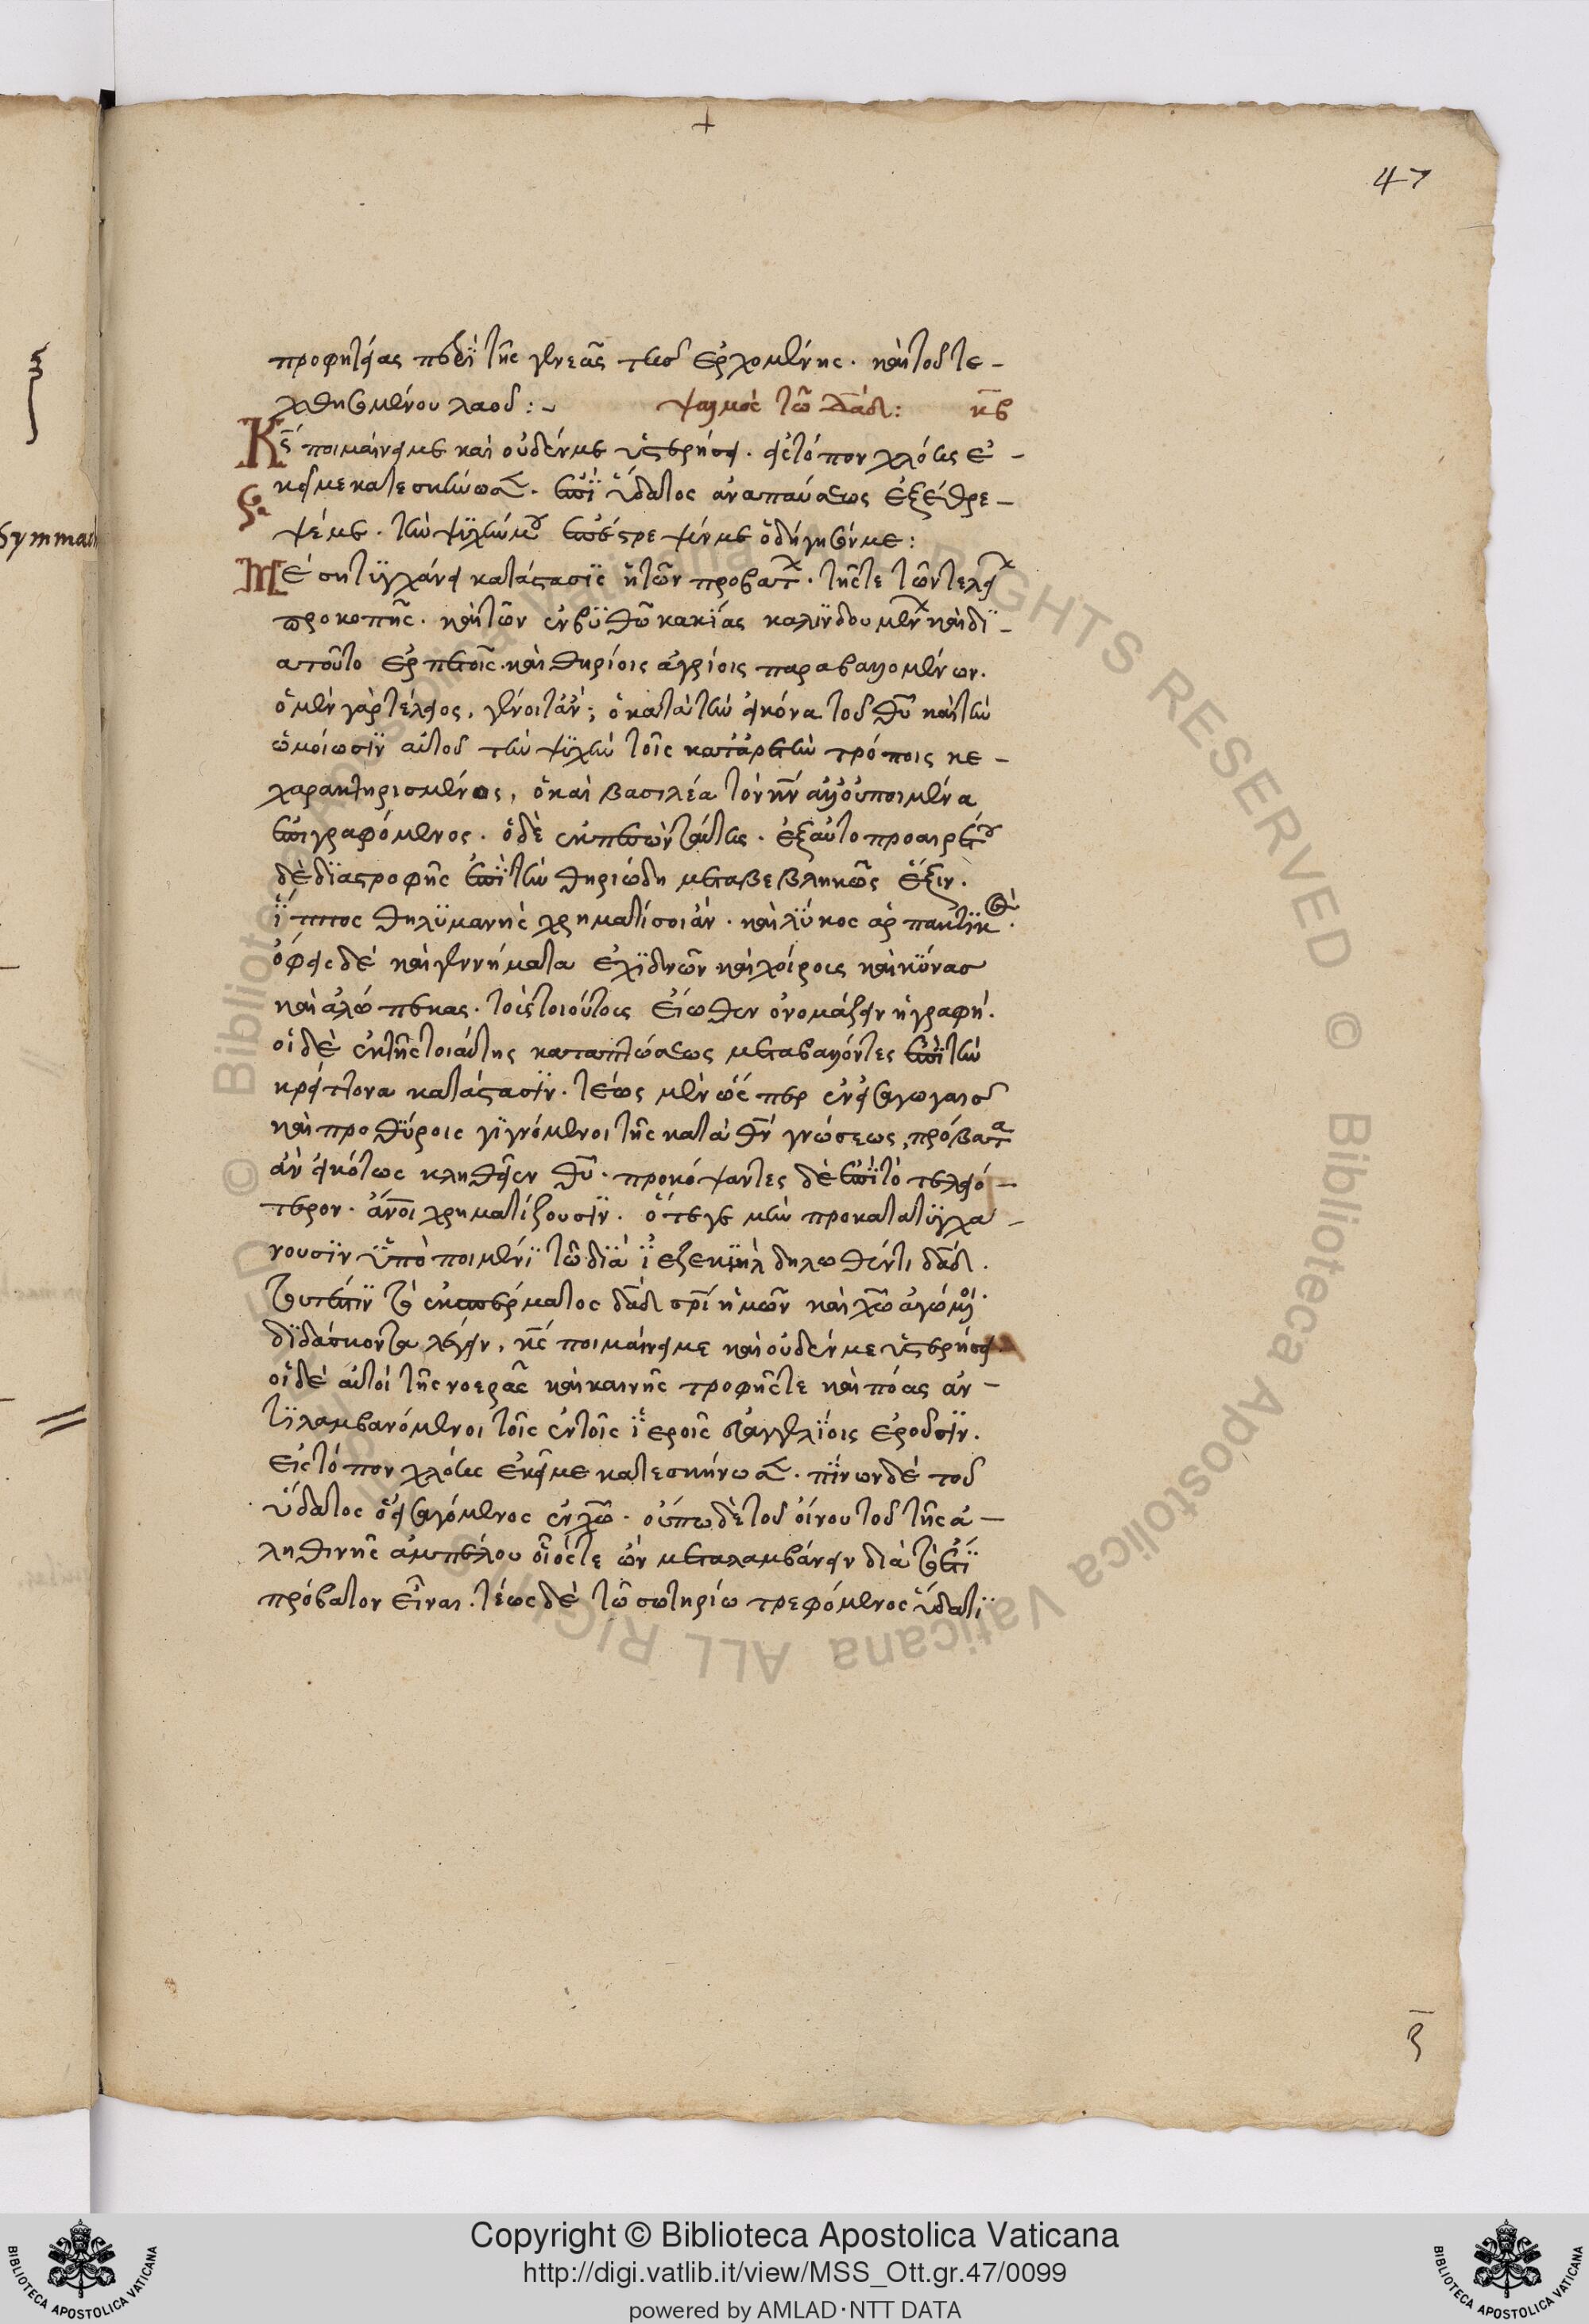 +
47
Symmach
προφητείας περὶ τῆς γενεᾶς τῆσ ἐρχομένης. καὶ τοῦ τε-
χθησομένου λαοῦ:- ψαλμὸς τῶ δᾱδ: κ̄β
Κ̄ς̄ ποιμαίνει με καὶ οὐδέν με ὑστερήσει. εἰς τόπον χλόης ἐ-
κεῖ με κατεσκήνωσεν. ἐπὶ ὕδατος ἀναπαύσεως ἐξέθρε-
ψέ με. τὴν ψυχήν μου ἐπέστρεψέν με ὁδήγησέν με:
Μέση τυγχάνει κατάστασις ἡ τῶν προβάτων. τῆς τε τῶν τελείων
προκοπῆς. καὶ τῶν ἐν βυθῶ κακίας καλινδουμένων καὶ δι-
ατοῦτο ἑρπετοῖς καὶ θηρίοις ἀγρίοις παραβαλλομένων.
ὁ μὲν γὰρ τέλειος, γένοιτ' ἄν; ὁ κατὰ τὴν εἰκόνα τοῦ θ̄ῡ καὶ τὴν
ὡμοίωσιν αὐτοῦ τὴν ψυχὴν τοῖς κατ' ἀρετὴν τρόποις κε-
χαρακτηρισμένος, ὁ καὶ βασιλέα τὸν κ̄ν̄ ἀλλ' οὐ ποιμένα
ἐπιγραφόμενος. ὁ δὲ ἐκπεσὼν ταύτης. ἐξ αὐτοπροαιρέτου
δὲ διαστροφῆς ἐπὶ τὴν θηριώδη μεταβεβληκὼς ἕξιν.
ἵππος θηλυμανὴς χρηματίσοι ἂν. καὶ λύκος ἁρπακτικὸς.
ὄφεις δὲ καὶ γεννήματα ἐχιδνῶν καὶ χοίρους καὶ κύνασ
καὶ ἀλώπεκας. τοὺς τοιούτους εἴωθεν ὀνομάζειν ἡ γραφή.
οἱ δὲ ἐκ τῆς τοιαύτης καταπτώσεως μεταβαλόντες ἐπὶ τὴν
κρείττονα κατάστασιν. τέως μὲν ὥσπερ ἐν εἰσαγωγαῖσ
καὶ προθύροις γιγνόμενοι τῆς κατὰ θ̄ν̄ γνώσεως, πρόβατα
ἂν εἰκότως κληθεῖεν θ̄ῡ. προκόψαντες δὲ ἐπὶ τὸ τελειό-
τερον. ἄν̄οι χρηματίζουσιν. ὅτε γε μὴν πρόκατα τυγχά-
νουσιν ὑπὸ ποιμένι τῶ διὰ ἰεζεκιὴλ δηλωθέντι δᾱδ.
τουτέστιν τὸ ἐκ σπέρματος δᾱδ σ̄ρ̄ι ἡμῶν καὶ χ̄ῶ ἀγόμενοι
διδάσκονται λέγειν, κ̄ς̄ ποιμαίνει με καὶ οὐδέν με ὑστερήσει.
οἱ δὲ αὐτοὶ τῆς νοερᾶς καὶ καινῆς τροφῆς τε καὶ πόας ἀν-
τιλαμβανόμενοι τοῖς ἐν τοῖς ἱεροῖς εὐαγγελίοις ἐροῦσιν.
εἰς τόπον χλόης ἐκεῖ με κατεσκήνωσεν. πίνων δὲ τοῦ
ὕδατος ὁ εἰσαγόμενος ἐν χ̄ῶ. οὔπω δὲ τοῦ οἴνου τοῦ τῆς ἀ-
ληθινῆς ἀμπέλου οἷός τε ὢν μεταλαμβάνειν διὰ τὸ ἔτι
πρόβατον εἶναι. τέως δὲ τῶ σωτηρίω τρεφόμενος ὕδατι
Copyright © Biblioteca Apostolica Vaticana
http://digi.vatlib.it/view/MSS_Ott.gr.47/0099
powered by AMLAD·NTT DATA